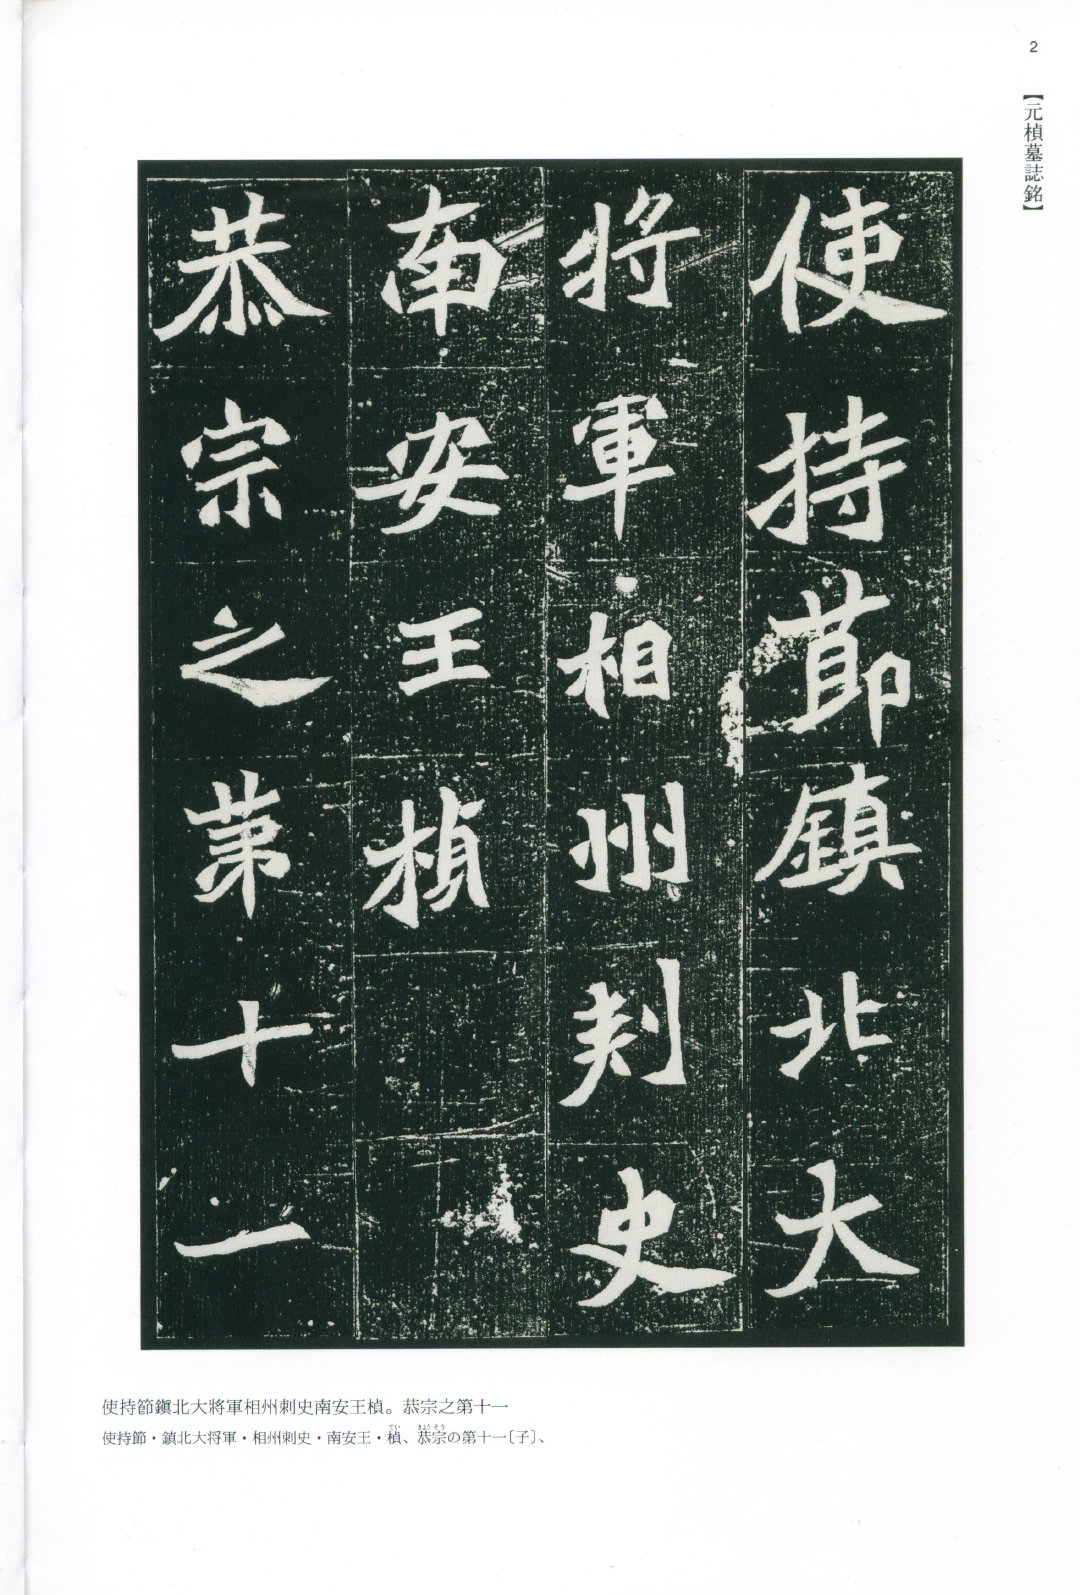 2
【元楨墓誌銘】
使持節鎮北大
將軍相州刺史
南安王楨
恭宗之第十一
使持節鎭北大將軍相州刺史南安王楨。恭宗之第十一
使持節・鎮北大将軍・相州刺史・南安王・楨、恭宗の第十一〔子〕、
てい きょうそう